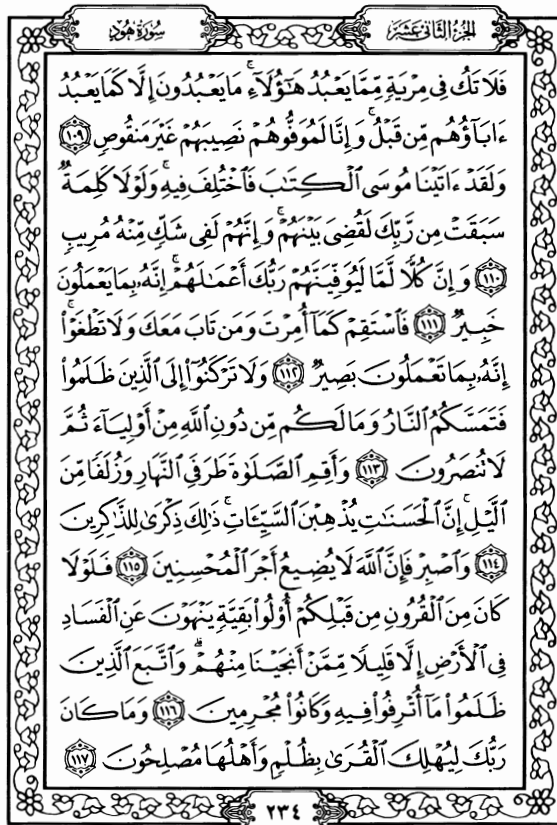 الجزء الثاني عشر
سورة هود
فَلَا تَكُ فِي مِرْيَةٍ مِّمَّا يَعْبُدُ هَٰٓؤُلَآءِ ۚ مَا يَعْبُدُونَ إِلَّا كَمَا يَعْبُدُ
ءَابَآؤُهُم مِّن قَبْلُ ۚ وَإِنَّا لَمُوَفُّوهُمْ نَصِيبَهُمْ غَيْرَ مَنقُوصٍ ١٠٩
وَلَقَدْ ءَاتَيْنَا مُوسَى ٱلْكِتَٰبَ فَٱخْتُلِفَ فِيهِ ۚ وَلَوْلَا كَلِمَةٌ
سَبَقَتْ مِن رَّبِّكَ لَقُضِيَ بَيْنَهُمْ ۚ وَإِنَّهُمْ لَفِي شَكٍّ مِّنْهُ مُرِيبٍ
١١٠ وَإِنَّ كُلًّا لَّمَّا لَيُوَفِّيَنَّهُمْ رَبُّكَ أَعْمَٰلَهُمْ ۚ إِنَّهُۥ بِمَا يَعْمَلُونَ
خَبِيرٌ ١١١ فَٱسْتَقِمْ كَمَآ أُمِرْتَ وَمَن تَابَ مَعَكَ وَلَا تَطْغَوْا۟ ۚ
إِنَّهُۥ بِمَا تَعْمَلُونَ بَصِيرٌ ١١٢ وَلَا تَرْكَنُوٓا۟ إِلَى ٱلَّذِينَ ظَلَمُوا۟
فَتَمَسَّكُمُ ٱلنَّارُ وَمَا لَكُم مِّن دُونِ ٱللَّهِ مِنْ أَوْلِيَآءَ ثُمَّ
لَا تُنصَرُونَ ١١٣ وَأَقِمِ ٱلصَّلَوٰةَ طَرَفَيِ ٱلنَّهَارِ وَزُلَفًا مِّنَ
ٱلَّيْلِ ۚ إِنَّ ٱلْحَسَنَٰتِ يُذْهِبْنَ ٱلسَّيِّـَٔاتِ ۚ ذَٰلِكَ ذِكْرَىٰ لِلذَّٰكِرِينَ
١١٤ وَٱصْبِرْ فَإِنَّ ٱللَّهَ لَا يُضِيعُ أَجْرَ ٱلْمُحْسِنِينَ ١١٥ فَلَوْلَا
كَانَ مِنَ ٱلْقُرُونِ مِن قَبْلِكُمْ أُو۟لُوا۟ بَقِيَّةٍ يَنْهَوْنَ عَنِ ٱلْفَسَادِ
فِي ٱلْأَرْضِ إِلَّا قَلِيلًا مِّمَّنْ أَنجَيْنَا مِنْهُمْ ۗ وَٱتَّبَعَ ٱلَّذِينَ
ظَلَمُوا۟ مَآ أُتْرِفُوا۟ فِيهِ وَكَانُوا۟ مُجْرِمِينَ ١١٦ وَمَا كَانَ
رَبُّكَ لِيُهْلِكَ ٱلْقُرَىٰ بِظُلْمٍ وَأَهْلُهَا مُصْلِحُونَ ١١٧
٢٣٤